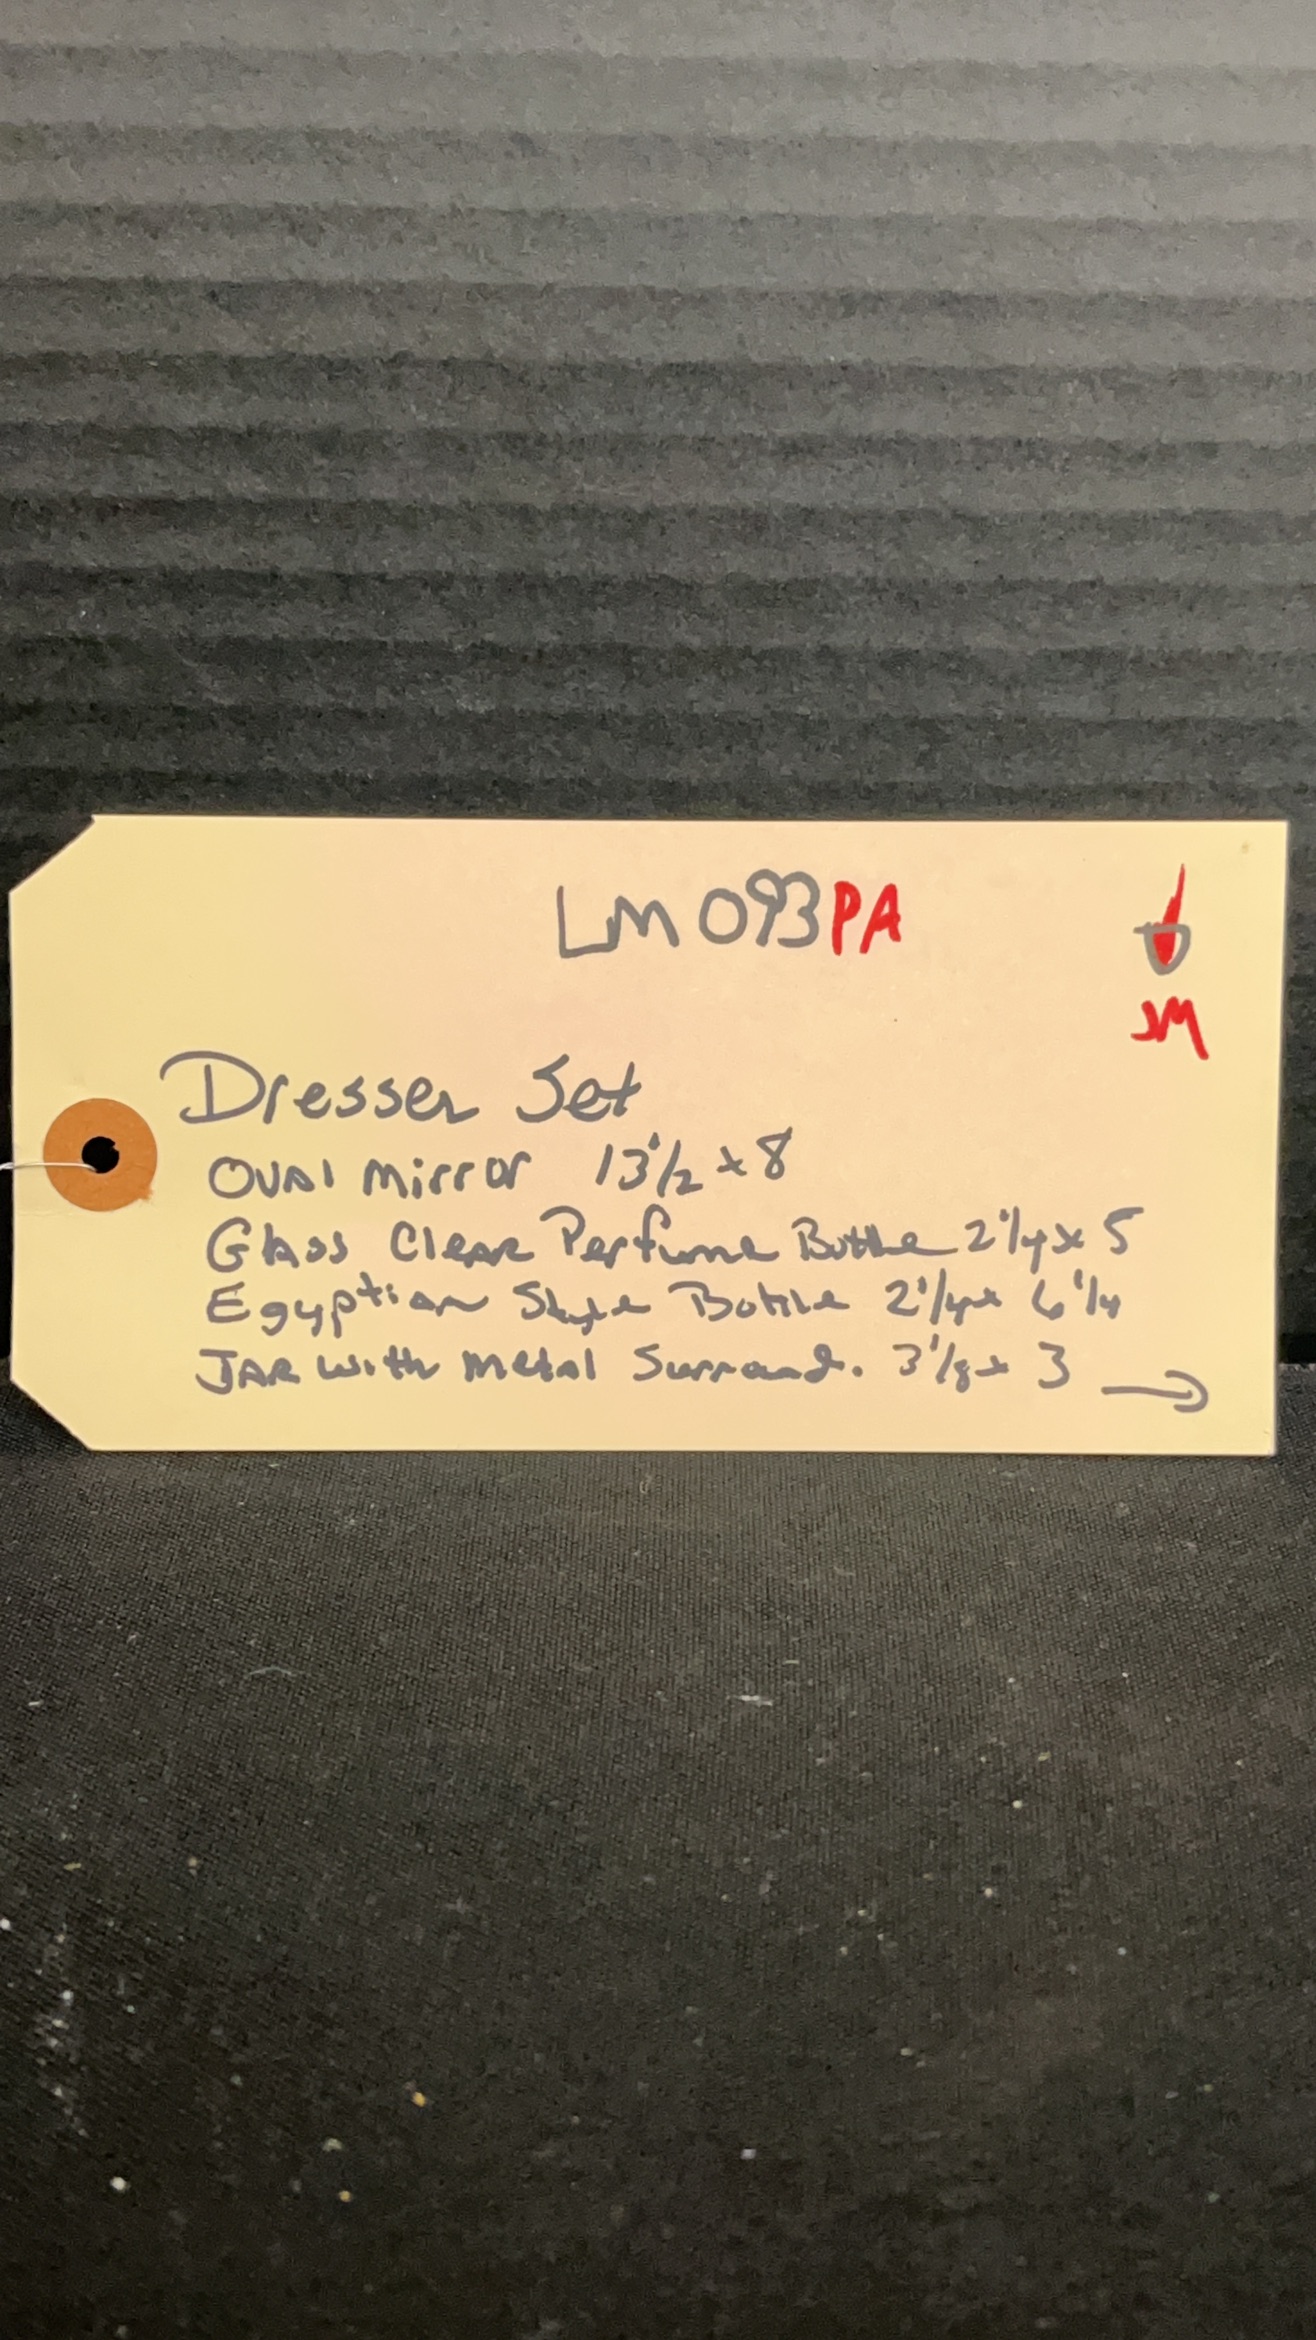 LM093PA
JM
Dresser Set
Oval Mirror 13 1/2 x 8
Glass Clear Perfume Bottle 2 1/4 x 5
Egyptian Style Bottle 2 1/4 x 6 1/4
Jar with Metal Surround. 3 1/8 x 3 →